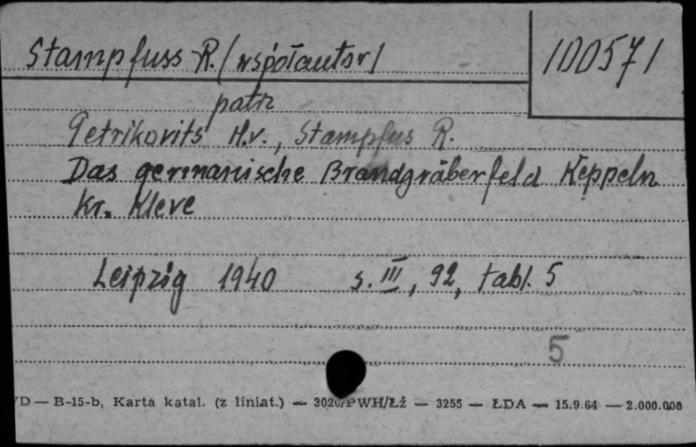 Stampfuss R. (współautor)
100571
patrz
Petrikovits H.v., Stampfus R.
Das germanische Brandgräberfeld Keppeln
kr. Kleve
Leipzig 1940 s. III, 92, tabl. 5
5
/D — B-15-b, Karta katal. (z liniat.) — 3020/PWH/Łź — 3255 — ŁDA — 15.9.64 — 2.000.000